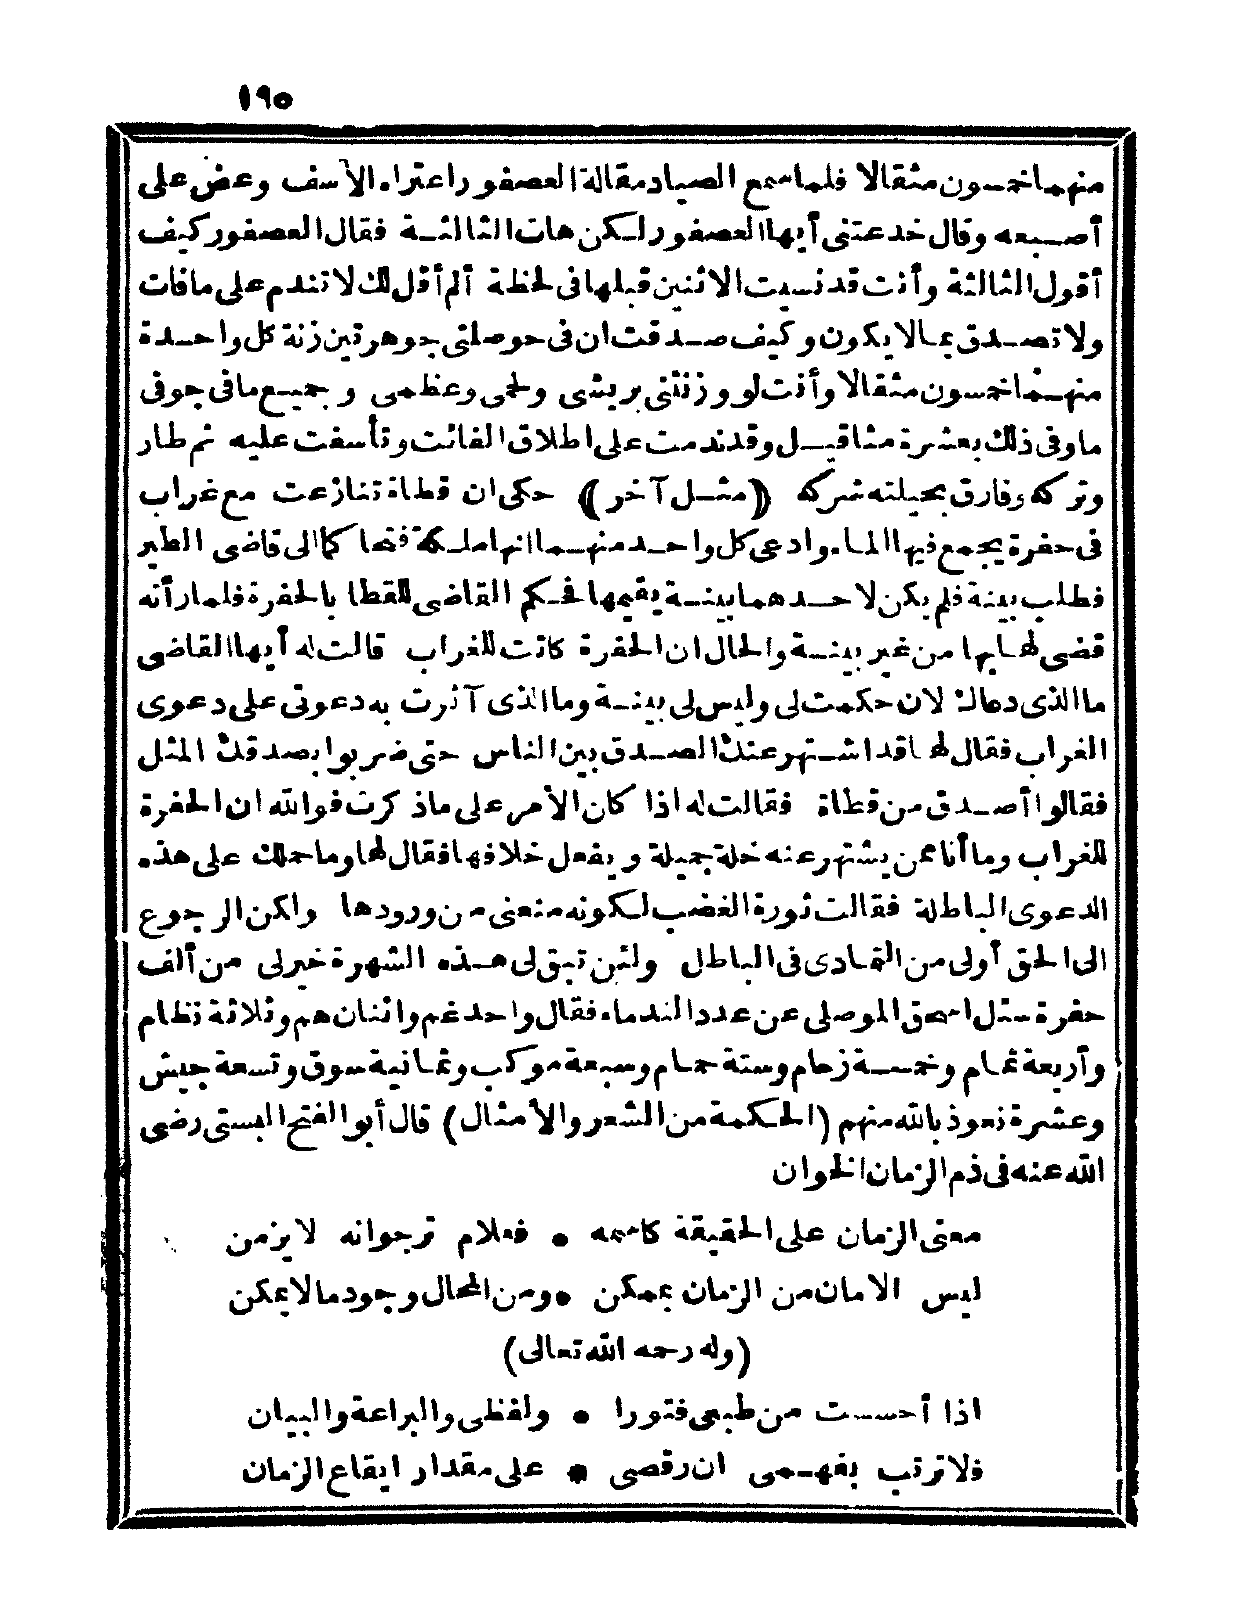 ١٩٥
منهما خمسون مثقالا فلما سمع الصياد مقالة العصفور اعتراه الأسف وعض على
أصبعه وقال خدعتنى أيها العصفور لكن هات الثالثة فقال العصفور كيف
أقول الثالثة وأنت قد نسيت الاثنين قبلها فى لحظة ألم أقل لك لا تندم على مافات
ولا تصدق بما لا يكون وكيف صدقت ان فى حوصلتى جوهرتين زنة كل واحدة
منهما خمسون مثقالا وأنت لو وزنتنى بريشى ولحمى وعظمى وجميع مافى جوفى
ماوفى ذلك بعشرة مثاقيل وقد ندمت على اطلاق الفائت وتأسفت عليه ثم طار
وتركه وفارق بحيلته شركه (مثل آخر) حكى ان قطاة تنازعت مع غراب
فى حفرة يجمع فيها الماء وادعى كل واحد منهما انها ملكه فتحاكما الى قاضى الطير
فطلب بينة فلم يكن لاحدهما بينة يقيمها فحكم القاضى للقطا بالحفرة فلما رأته
قضى لها بها من غير بينة والحال ان الحفرة كانت للغراب قالت له أيها القاضى
ما الذى دعاك لان حكمت لى وليس لى بينة وما الذى آثرت به دعوتى على دعوى
الغراب فقال لها قد اشتهر عنك الصدق بين الناس حتى ضربوا بصدقك المثل
فقالوا أصدق من قطاة فقالت له اذا كان الأمر على ماذكرت فوالله ان الحفرة
للغراب وما أنا ممن يشتهر عنه خلة جميلة ويفعل خلافها فقال لها وما حملك على هذه
الدعوى الباطلة فقالت ثورة الغضب لكونه منعنى من ورودها ولكن الرجوع
الى الحق أولى من التمادى فى الباطل ولئن تبق لى هذه الشهرة خير لى من ألف
حفرة سئل اسحق الموصلى عن عدد الندماء فقال واحد غم واثنان هم وثلاثة نظام
وأربعة تمام وخمسة زحام وستة حمام وسبعة موكب وثمانية سوق وتسعة جيش
وعشرة نعوذ بالله منهم (الحكمة من الشعر والأمثال) قال أبو الفتح البستى رضى
الله عنه فى ذم الزمان الخوان
معنى الزمان على الحقيقة كاسمه • فعلام ترجو انه لا يزمن
ليس الامان من الزمان بممكن • ومن المحال وجود مالا يمكن
(وله رحمه الله تعالى)
اذا أحسست من طبعى فتورا • ولفظى والبراعة والبيان
فلا ترتب بفهمى ان رقصى • على مقدار ايقاع الزمان